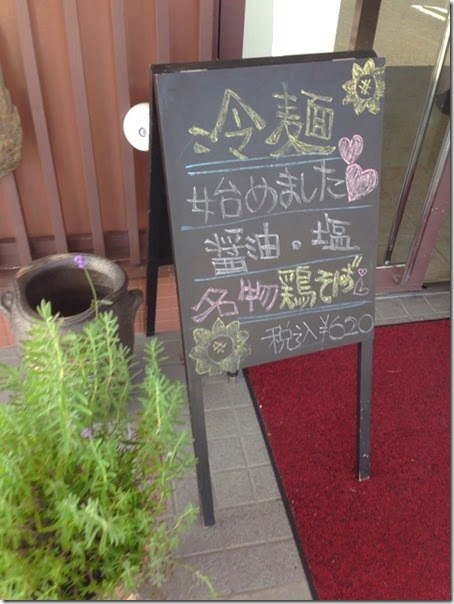 冷麺
始めました
醤油・塩
名物鶏そば
税込¥620